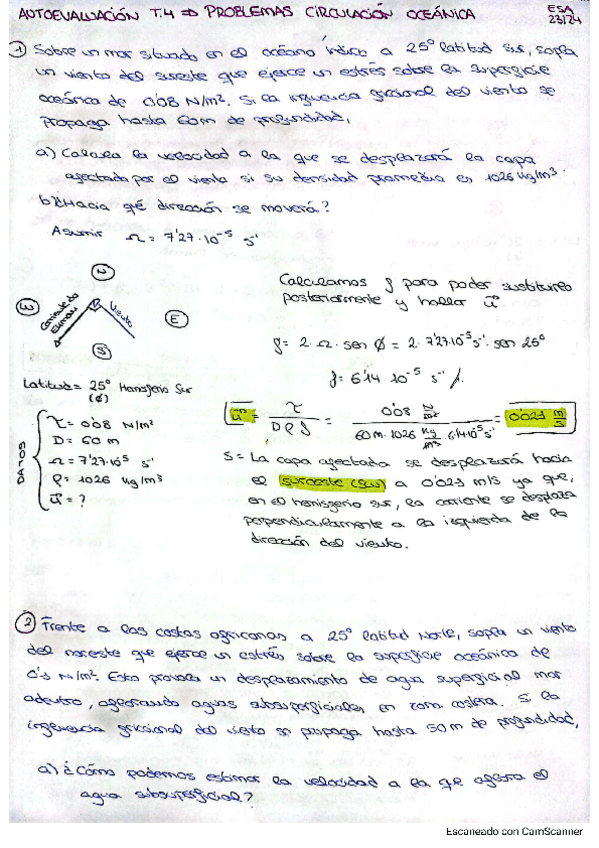 AUTOEVALUACIÓN T.4 ⇒ PROBLEMAS CIRCULACIÓN OCEÁNICA
ESA
23/24
① Sobre un mar situado en el océano Índico a 25° latitud sur, sopla
un viento del sureste que ejerce un estrés sobre la superficie
oceánica de 0'08 N/m². Si la influencia friccional del viento se
propaga hasta 60m de profundidad,
a) Calcula la velocidad a la que se desplazará la capa
afectada por el viento si su densidad promedia es 1026 kg/m³.
b) ¿Hacia qué dirección se moverá?
Asumir Ω = 7'27·10⁻⁵ s⁻¹
N
W
Corriente de
Ekman
Viento
E
S
Calculamos f para poder sustituirlo
posteriormente y hallar ū
f = 2·Ω·sen Ø = 2·7'27·10⁻⁵ s⁻¹·sen 25°
f = 6'14·10⁻⁵ s⁻¹
Latitud = 25° Hemisferio Sur
(Ø)
DATOS
τ = 0'08 N/m²
D = 60 m
Ω = 7'27·10⁻⁵ s⁻¹
ρ = 1026 kg/m³
ū = ?
ū = τ / Dρf = 0'08 N/m² / 60m·1026 kg/m³·6'14·10⁻⁵ s⁻¹ = 0'021 m/s
S = La capa afectada se desplazará hacia
el suroeste (SW) a 0'021 m/s ya que,
en el hemisferio sur, la corriente se desplaza
perpendicularmente a la izquierda de la
dirección del viento.
② Frente a las costas africanas a 25° latitud Norte, sopla un viento
del noreste que ejerce un estrés sobre la superficie oceánica de
N/m². Esto provoca un desplazamiento de agua superficial mar
adentro, aflorando aguas subsuperficiales en zona costera. Si la
influencia friccional del viento se propaga hasta 50m de profundidad,
a) ¿Cómo podemos estimar la velocidad a la que aflora el
agua subsuperficial?
Escaneado con CamScanner